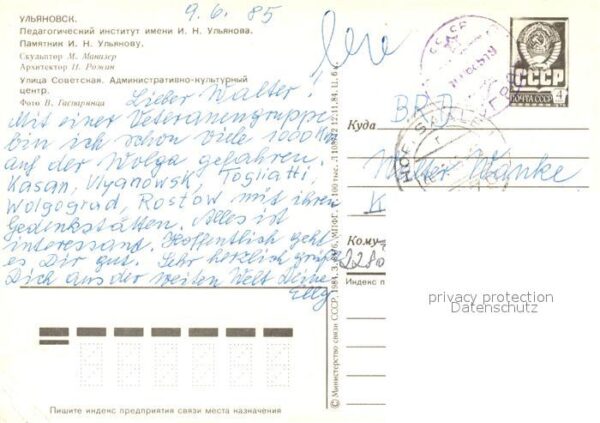 9.6.85
УЛЬЯНОВСК.
Педагогический институт имени И. Н. Ульянова.
Памятник И. Н. Ульянову.
Скульптор М. Манизер
Архитектор
Улица Советская. Административно-культурный
центр.
Фото В. Гаспарянца
Lieber Walter!
Mit einer Veteranengruppe
bin ich schon viele 1000 km
auf der Wolga gefahren.
Kasan, Ulyanowsk, Togliatti,
Wolgograd, Rostow mit ihren
Gedenkstätten. Alles ist
interessant. Hoffentlich geht
es Dir gut. Sehr herzlich grüßt
Dich aus der weiten Welt Deine
Elly
© Министерство связи СССР, 1984.
12.11.84.
СССР
ПОЧТА СССР
4
Куда
BRD
Walter
Кому
Индекс п
privacy protection
Datenschutz
Пишите индекс предприятия связи места назначения